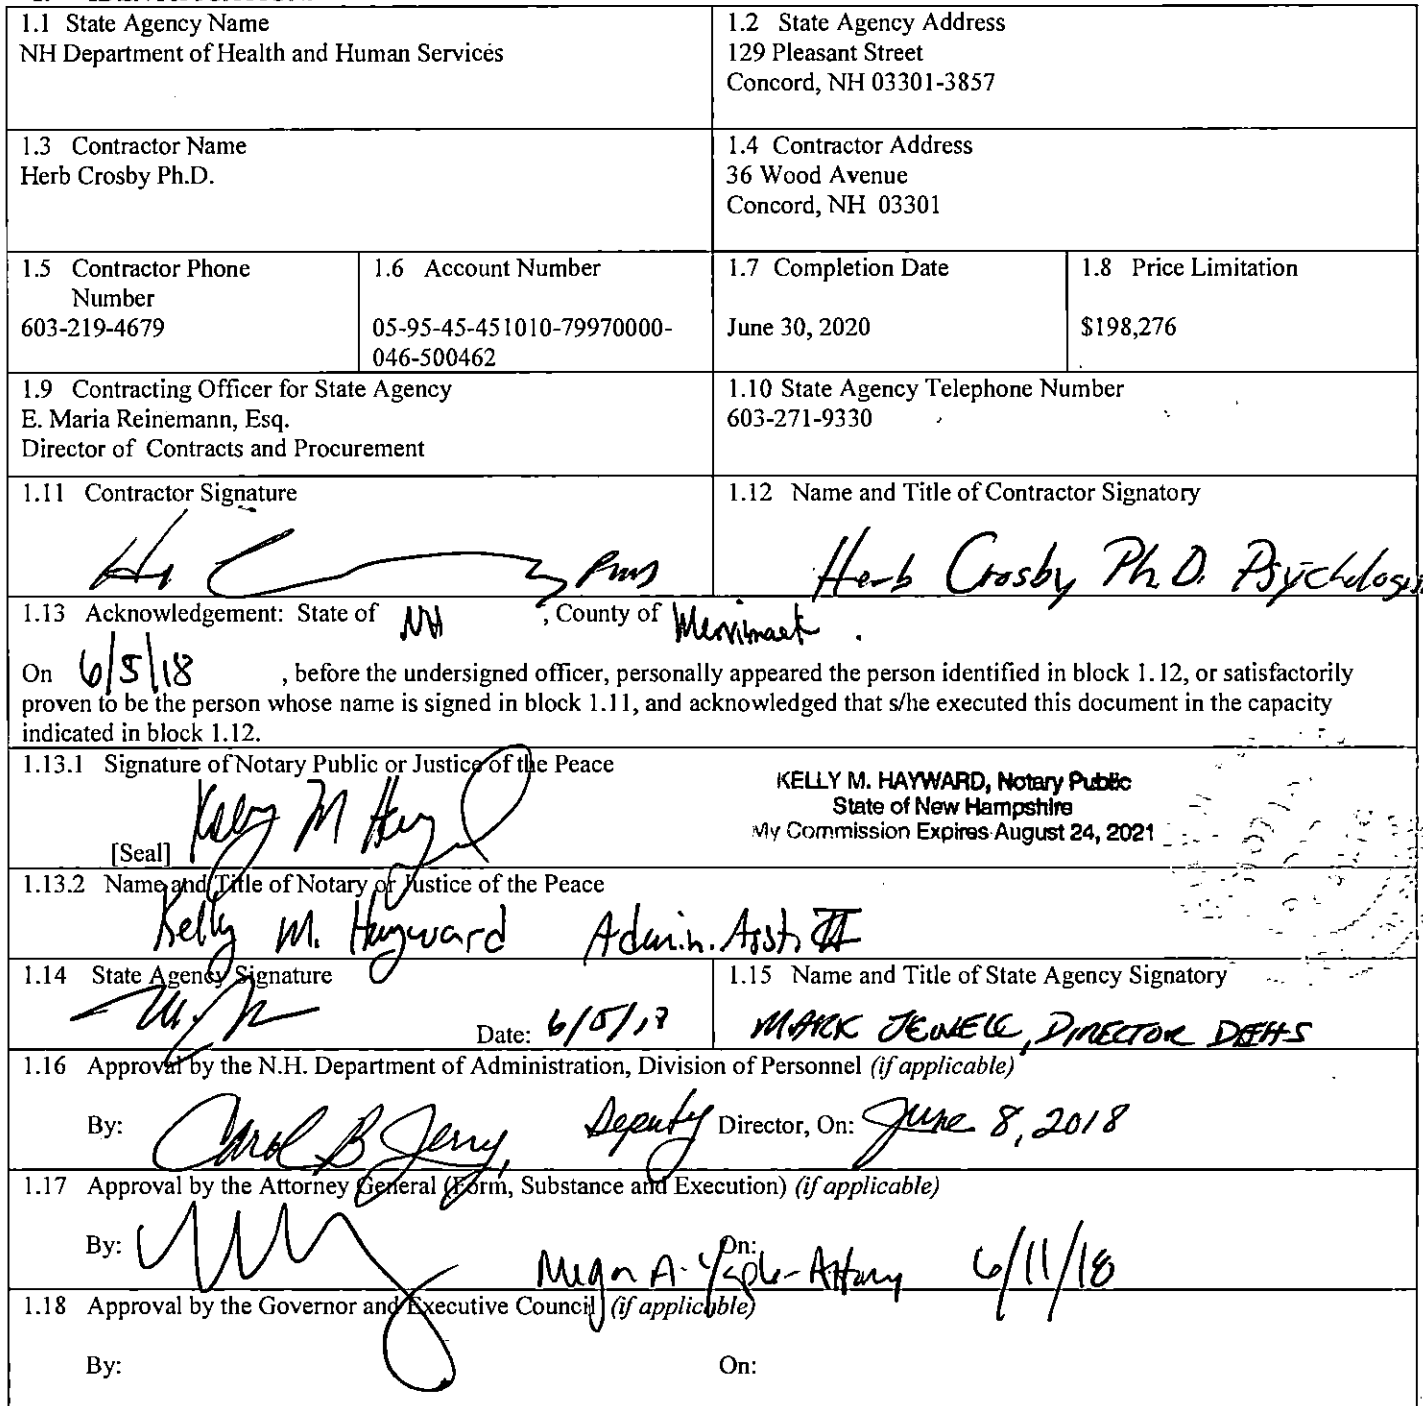 1.1 State Agency Name
NH Department of Health and Human Services
1.2 State Agency Address
129 Pleasant Street
Concord, NH 03301-3857
1.3 Contractor Name
Herb Crosby Ph.D.
1.4 Contractor Address
36 Wood Avenue
Concord, NH 03301
1.5 Contractor Phone
Number
603-219-4679
1.6 Account Number
05-95-45-451010-79970000-
046-500462
1.7 Completion Date
June 30, 2020
1.8 Price Limitation
$198,276
1.9 Contracting Officer for State Agency
E. Maria Reinemann, Esq.
Director of Contracts and Procurement
1.10 State Agency Telephone Number
603-271-9330
1.11 Contractor Signature
1.12 Name and Title of Contractor Signatory
Herb Crosby Ph.D. Psychologist
1.13 Acknowledgement: State of NH , County of Merrimack .
On 6/5/18 , before the undersigned officer, personally appeared the person identified in block 1.12, or satisfactorily
proven to be the person whose name is signed in block 1.11, and acknowledged that s/he executed this document in the capacity
indicated in block 1.12.
1.13.1 Signature of Notary Public or Justice of the Peace
Kelly M Hayward
[Seal]
KELLY M. HAYWARD, Notary Public
State of New Hampshire
My Commission Expires August 24, 2021
1.13.2 Name and Title of Notary or Justice of the Peace
Kelly M. Hayward Admin. Asst. II
1.14 State Agency Signature
Date: 6/5/18
1.15 Name and Title of State Agency Signatory
MARK JEWELL, DIRECTOR DEHS
1.16 Approval by the N.H. Department of Administration, Division of Personnel (if applicable)
By: Deputy Director, On: June 8, 2018
1.17 Approval by the Attorney General (Form, Substance and Execution) (if applicable)
By: On:
Megan A. Yaple-Attorney 6/11/18
1.18 Approval by the Governor and Executive Council (if applicable)
By: On: